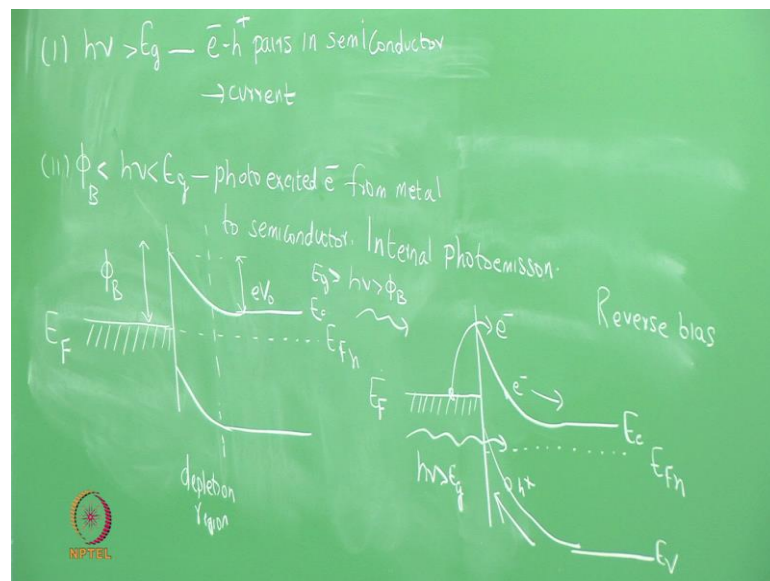 (I) hν > Eg — e⁻-h⁺ pairs in semiconductor
→ current
(II) ϕB < hν < Eg — photoexcited e⁻ from metal
to semiconductor. Internal photoemisson.
ϕB
eV₀
EF
Ec
EFn
depletion
region
Eg > hν > ϕB
Reverse bias
e⁻
e⁻ →
EF
Ec
EFn
hν > Eg
Ev
NPTEL